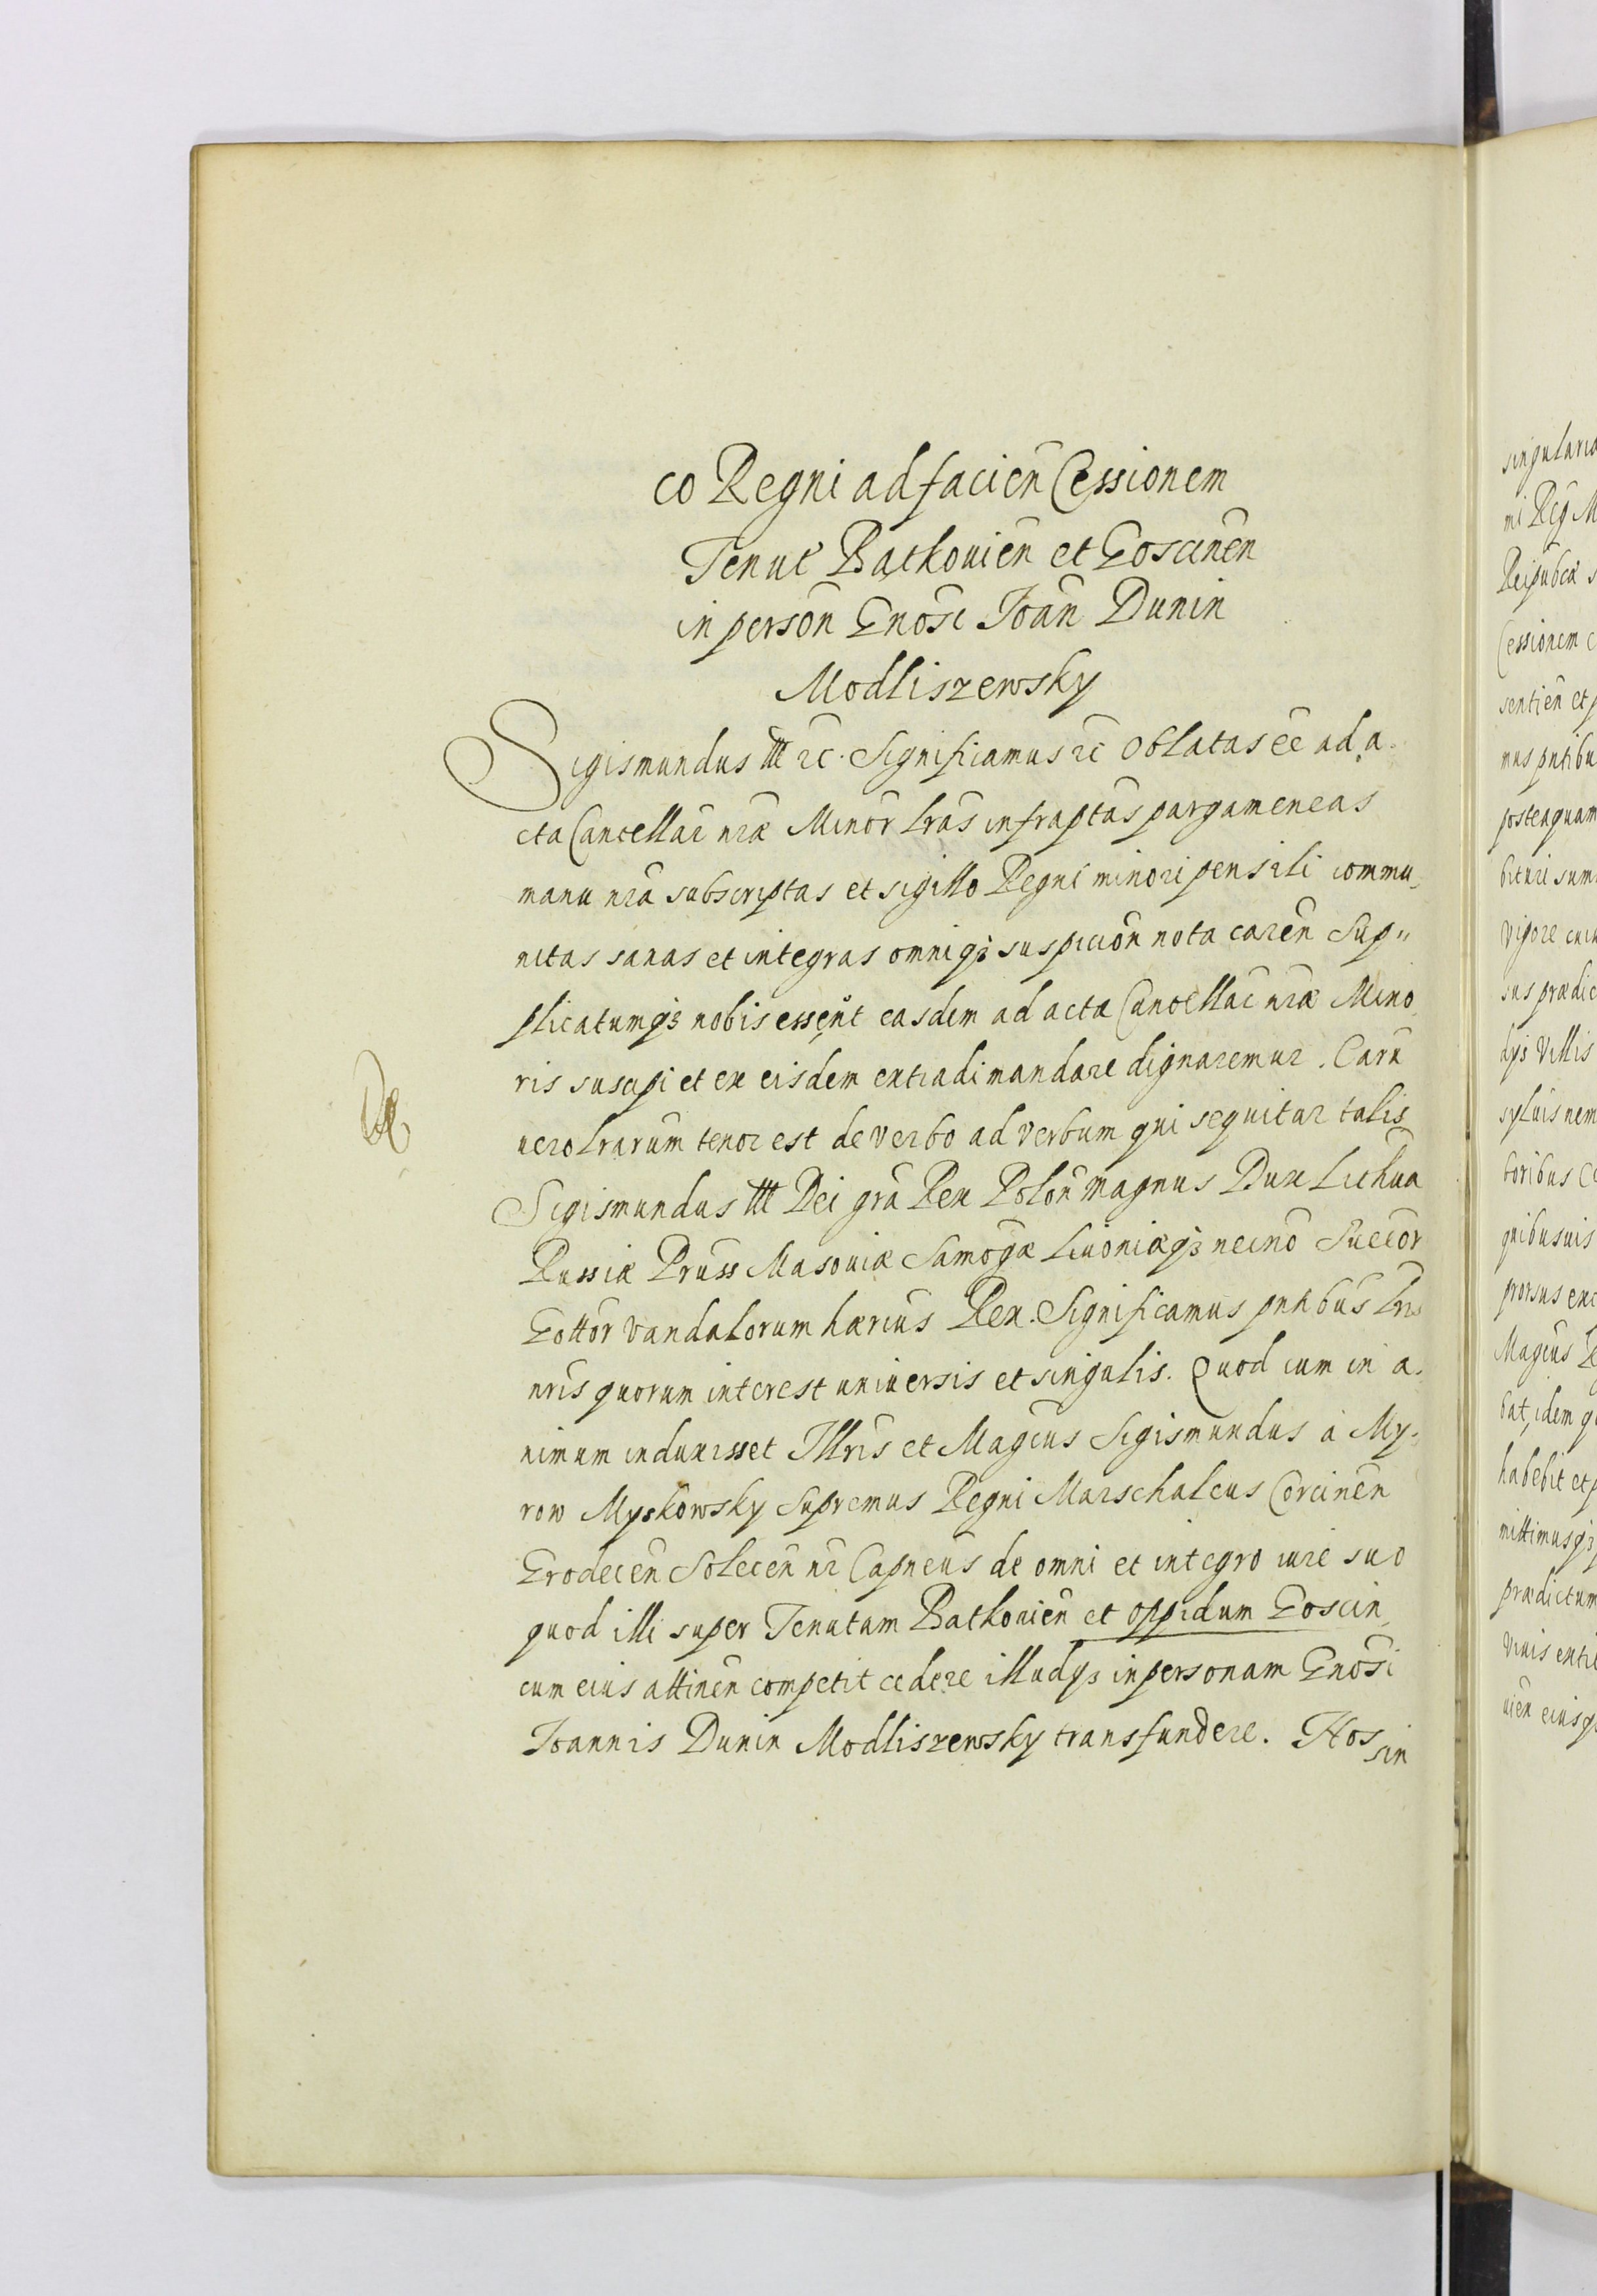 co Regni ad facien̄ Cessionem
Tenut̄ Batkouien̄ et Goscinen̄
in person̄ Gnōsi Ioan̄ Dunin
Modliszewsky
Sigismundus III zc. Significamus zc oblatas eē ad a„
cta Cancellar̄ nr̄æ Minor̄ Lrās infraptās pargameneas
manu nr̄a subscriptas et sigillo Regni minori pensili commu„
nitas sanas et integras omniqꝫ suspicion̄ nota caren̄ Sup„
plicatumqꝫ nobis essent̄ easdem ad acta Cancellar̄ nr̄æ Mino„
ris suscipi et ex eisdem extradi mandare dignaremur. Carū
uero Lrarum tenor est de verbo ad verbum qui sequitur talis
Sigismundus III Dei grā Rex Polon̄ magnus Dux Lithua
Russiæ Pruss̄ Masouiæ Samog̅æ Liuoniæqꝫ necnō Sueor̄
Gottor̄ Vandalorum hærius̄ Rex. Significamus pn̄tibus̄ Lris
nr̄is quorum interest uniuersis et singulis. Quod cum in a„
nimum induxisset Illr̄is et Magcūs Sigismundus à My„
row Myskowsky Supremus Regni Marschalcus Corcinen̄
Grodecen̄ Solecen̄ zc Capneūs de omni et integro iure suo
quod illi super Tenutam Batkouien̄ et oppidum Goscin„
cum eius attinen̄ competit cedere illudqꝫ in personam Gnōsi
Ioannis Dunin Modliszewsky transfundere. Nos
sin
De
singularia
mi Reg M
Reipubcæ
Cessionem
sentien̄ et
mus pn̄tibu
posteaquam
Vigore
sus prædic
Villis
syluis nem
quibusuis
prorsus
Magcūs
bat, idem
habebit et
mittimusqꝫ
prædictum